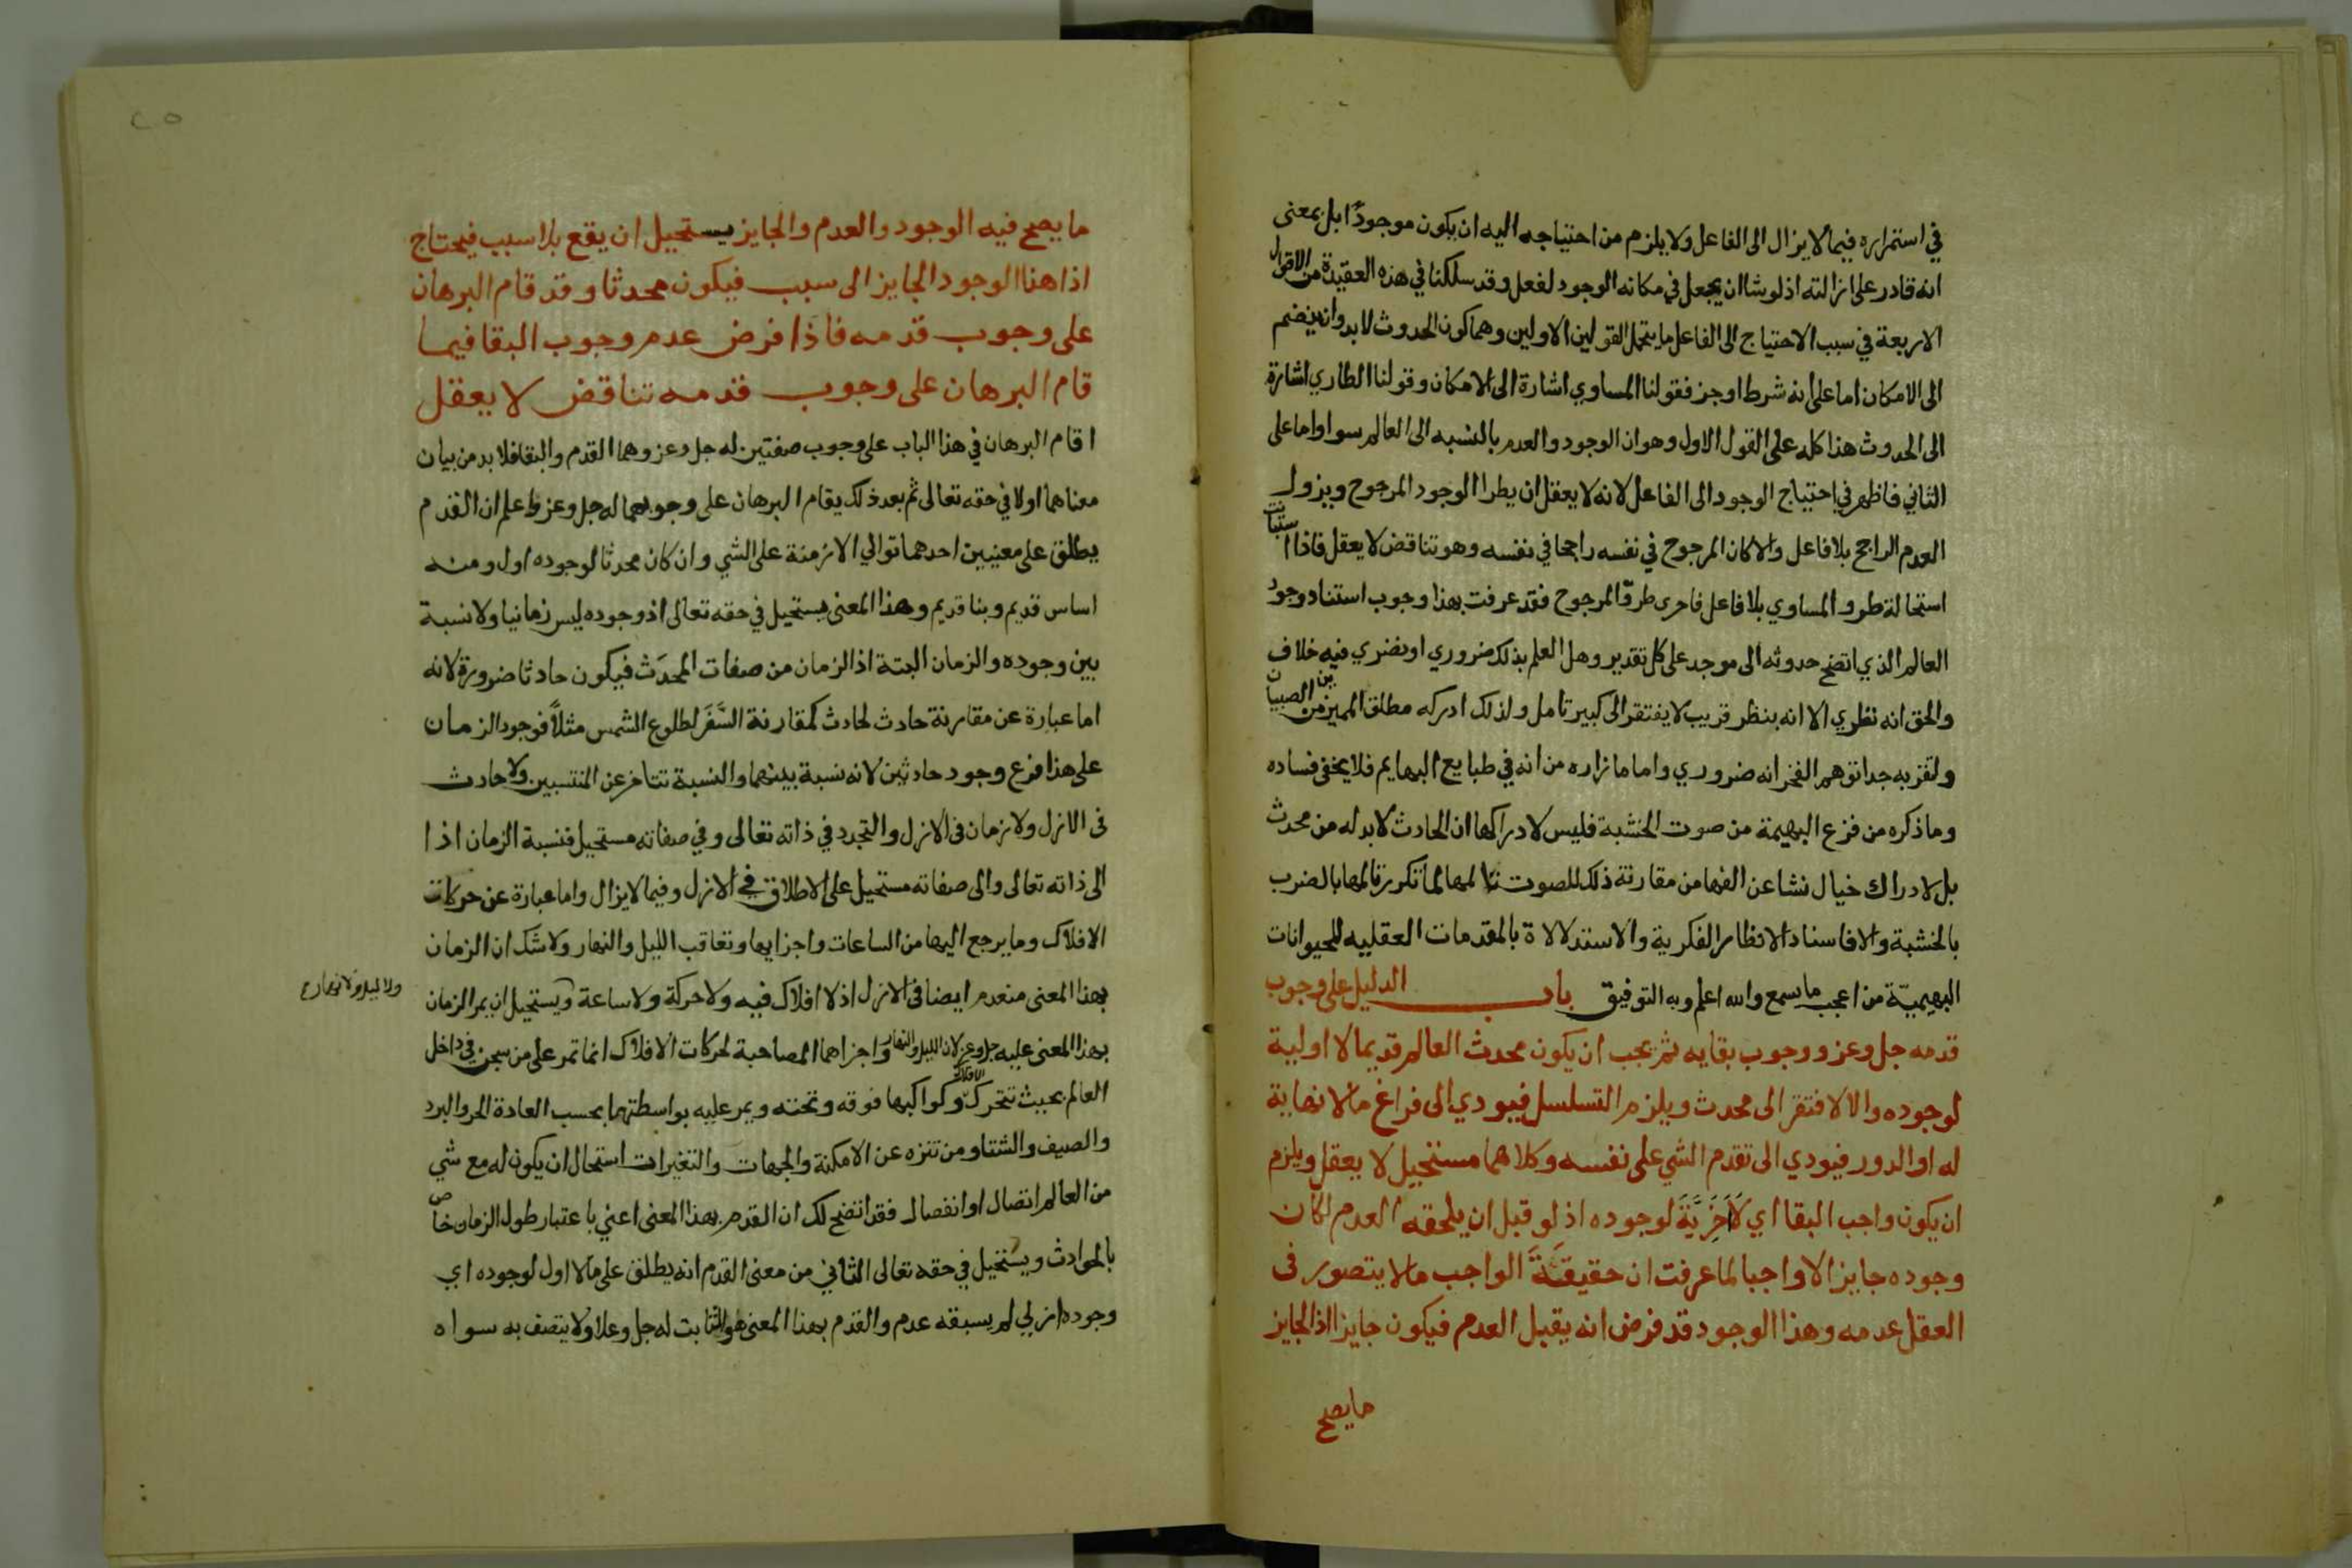 في استمراره فيما لا يزال الى الفاعل ولا يلزم من احتياجه اليه ان يكون موجودًا بل بمعنى
انه قادر على ازالته اذ لو شا ان يجعل في مكانه الوجود لفعل وقد سلكنا في هذه العقيدة من الاقوال
الاربعة في سبب الاحتياج الى الفاعل ما يتحمل القولين الاولين وهما كون الحدوث لابد وان ينضم
الى الامكان اما على انه شرط او جز فقولنا المساوي اشارة الى الامكان وقولنا الطاري اشارة
الى الحدوث هذا كله على القول الاول وهو ان الوجود والعدم بالنسبه الى العالم سوا واما على
الثاني فاظهر في احتياج الوجود الى الفاعل لانه لا يعقل ان يطرا الوجود المرجوح ويزول
العدم الراجح بلا فاعل والا كان المرجوح في نفسه راجحا في نفسه وهو تناقض لا يعقل فاذا استبانت
استحالة طرو المساوي بلا فاعل فاحرى طروّ المرجوح فقد عرفت بهذا وجوب استناد وجود
العالم الذي اتضح حدوثه الى موجد على كل تقدير وهل العلم بذلك ضروري او نضري فيه خلاف
والحق انه نظري الا انه بنظر قريب لا يفتقر الى كبير تامل ولذلك ادركه مطلق المميزين من الصبيان
ولقربه جدا توهم الفخر انه ضروري واما ما زاره من انه في طبايع البهايم فلا يخفى فساده
وما ذكره من فزع البهيمة من صوت الخشبة فليس لادراكها ان الحادث لابد له من محدث
بل لادراك خيال نشا عن الفها من مقارنة ذلك للصوت تالمها لما تكرر تالمها بالضرب
بالخشبة والا فاسناد الانظار الفكرية والاستدلالاة بالمقدمات العقليه للحيوانات
البهيميّة من اعجب ما يسمع والله اعلم وبه التوفيق باب الدليل على وجوب
قدمه جل وعز ووجوب بقايه ثم يجب ان يكون محدث العالم قديما لا اولية
لوجوده والا لافتقر الى محدث ويلزم التسلسل فيودي الى فراغ ما لا نهاية
له او الدور فيودي الى تقدم الشي على نفسه وكلاهما مستحيل لا يعقل ويلزم
ان يكون واجب البقا اي لا اخريَّة لوجوده اذ لو قبل ان يلحقه العدم لكان
وجوده جايزا لا واجبا لما عرفت ان حقيقَةَ الواجب ما لا يتصور فى
العقل عدمه وهذا الوجود قد فرض انه يقبل العدم فيكون جايزا اذ الجايز
ما يصح
٢٥
ما يصح فيه الوجود والعدم والجايز يستحيل ان يقع بلا سبب فيحتاج
اذا هنا الوجود الجايز الى سبب فيكون محدثا وقد قام البرهان
على وجوب قدمه فاذا فرض عدم وجوب البقا فيما
قام البرهان على وجوب قدمه تناقض لا يعقل
اقام البرهان في هذا الباب على وجوب صفتين له جل وعز وهما القدم والبقا فلا بد من بيان
معناهما اولا في حقه تعالى ثم بعد ذلك يقام البرهان على وجوبهما له جل وعز فاعلم ان القدم
يطلق على معنيين احدهما توالي الازمنة على الشي وان كان محدثا لوجوده اول ومنه
اساس قديم وبنا قديم وهذا المعنى يستحيل في حقه تعالى اذ وجوده ليس زمانيا ولا نسبة
بين وجوده والزمان البتة اذ الزمان من صفات المحدَث فيكون حادثا ضرورة لانه
اما عبارة عن مقارنة حادث لحادث كمقارنة السَّفَر لطلوع الشمس مثلاً فوجود الزمان
على هذا فرع وجود حادثين لانه نسبة بينهما والنسبة تتاخر عن المنتسبين ولا حادث
فى الازل ولا زمان فى الازل والتجدد في ذاته تعالى وفي صفاته مستحيل فنسبة الزمان اذا
الى ذاته تعالى والى صفاته مستحيل على الاطلاق في الازل وفيما لا يزال واما عبارة عن حركات
الافلاك وما يرجع اليها من الساعات واجزايها وتعاقب الليل والنهار ولا شك ان الزمان
بهذا المعنى منعدم ايضا فى الازل اذ لا افلاك فيه ولا حركة ولا ساعة ويستحيل ان يمر الزمان
ولا ليل ولا نهار
بهذا المعنى عليه جل وعز لان الليل والنهار واجزاهما المصاحبة لحركات الافلاك انما تمر على من سجن في داخل
العالم بحيث تتحرك الافلاك وكواكبها فوقه وتحته ويمر عليه بواسطتهما بحسب العادة الحر والبرد
والصيف والشتا ومن تنزه عن الامكنة والجهات والتغيرات استحال ان يكون له مع شي
من العالم اتصال او انفصال فقد اتضح لك ان القدم بهذا المعنى اعني باعتبار طول الزمان خاص
بالحوادث ويستحيل في حقه تعالى الثاني من معنى القدم انه يطلق على ما لا اول لوجوده اي
وجوده ازلي لم يسبقه عدم والقدم بهذا المعنى هو الثابت له جل وعلا ولا يتصف به سواه